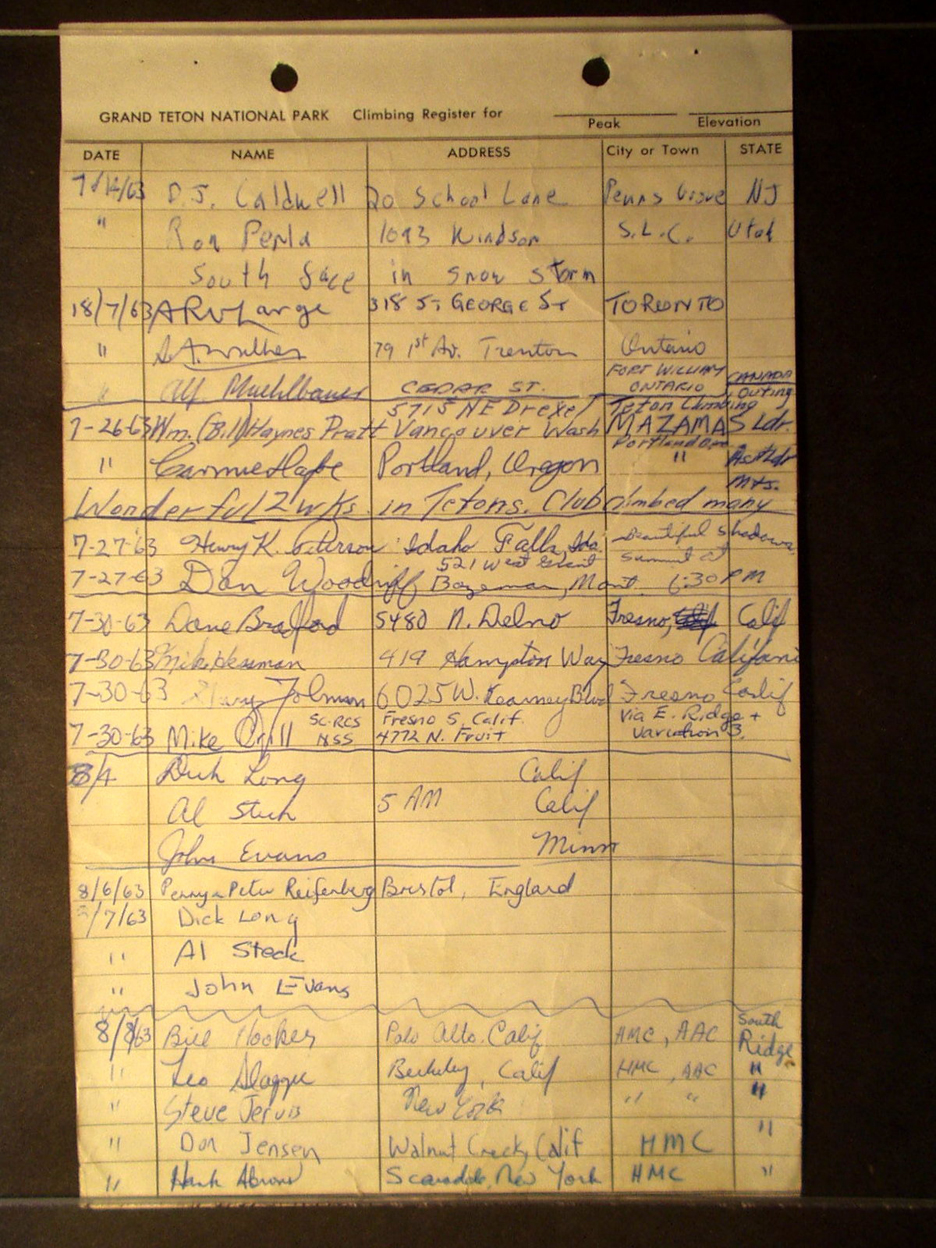 GRAND TETON NATIONAL PARK Climbing Register for
Peak Elevation
DATE NAME ADDRESS City or Town STATE
7/14/63 D.J. Caldwell 20 School Lane Penns Grove NJ
" Ron Perla 1093 Windsor S.L.C. Utah
South Face in snow storm
18/7/63 Large 318 St GEORGE St TORONTO
" 79 1st Av. Trenton Ontario
" Alf Muehlbauer CEDAR ST. FORT WILLIAM ONTARIO CANADA
5715 NE Drexel Teton Climbing Outing
7-26-63 Wm. (Bill) Haynes Pratt Vancouver Wash MAZAMAS Ldr.
Portland Ore.
" Portland, Oregon " Asst Ldr
Mts.
Wonderful 2 wks. in Tetons. Club climbed many
7-27-63 Henry K. Peterson Idaho Falls, Ida. beautiful shadows
521 West Grant summit at
7-27-63 Don Woodriff Bozeman, Mont. 6:30 PM
7-30-63 Dave Bradford 5480 N. Delno Fresno, Calif
7-30-63 Mike 419 Hampton Way Fresno California
7-30-63 Tolman 6025 W. Kearney Blvd Fresno Calif
SC-RCS Fresno 5, Calif. via E. Ridge +
7-30-63 Mike NSS 4772 N. Fruit variation 3.
8/4 Dick Long Calif
Al Steck 5 AM Calif
John Evans Minn
8/6/63 Penny & Peter Reifenberg Bristol, England
8/7/63 Dick Long
" Al Steck
" John Evans
8/8/63 Bill Hooker Palo Alto. Calif HMC, AAC South Ridge
" Leo Slaggie Berkeley, Calif HMC, AAC "
" Steve Jervis New York " " "
" Don Jensen Walnut Creek, Calif HMC "
" Hank Abrons Scarsdale, New York HMC "